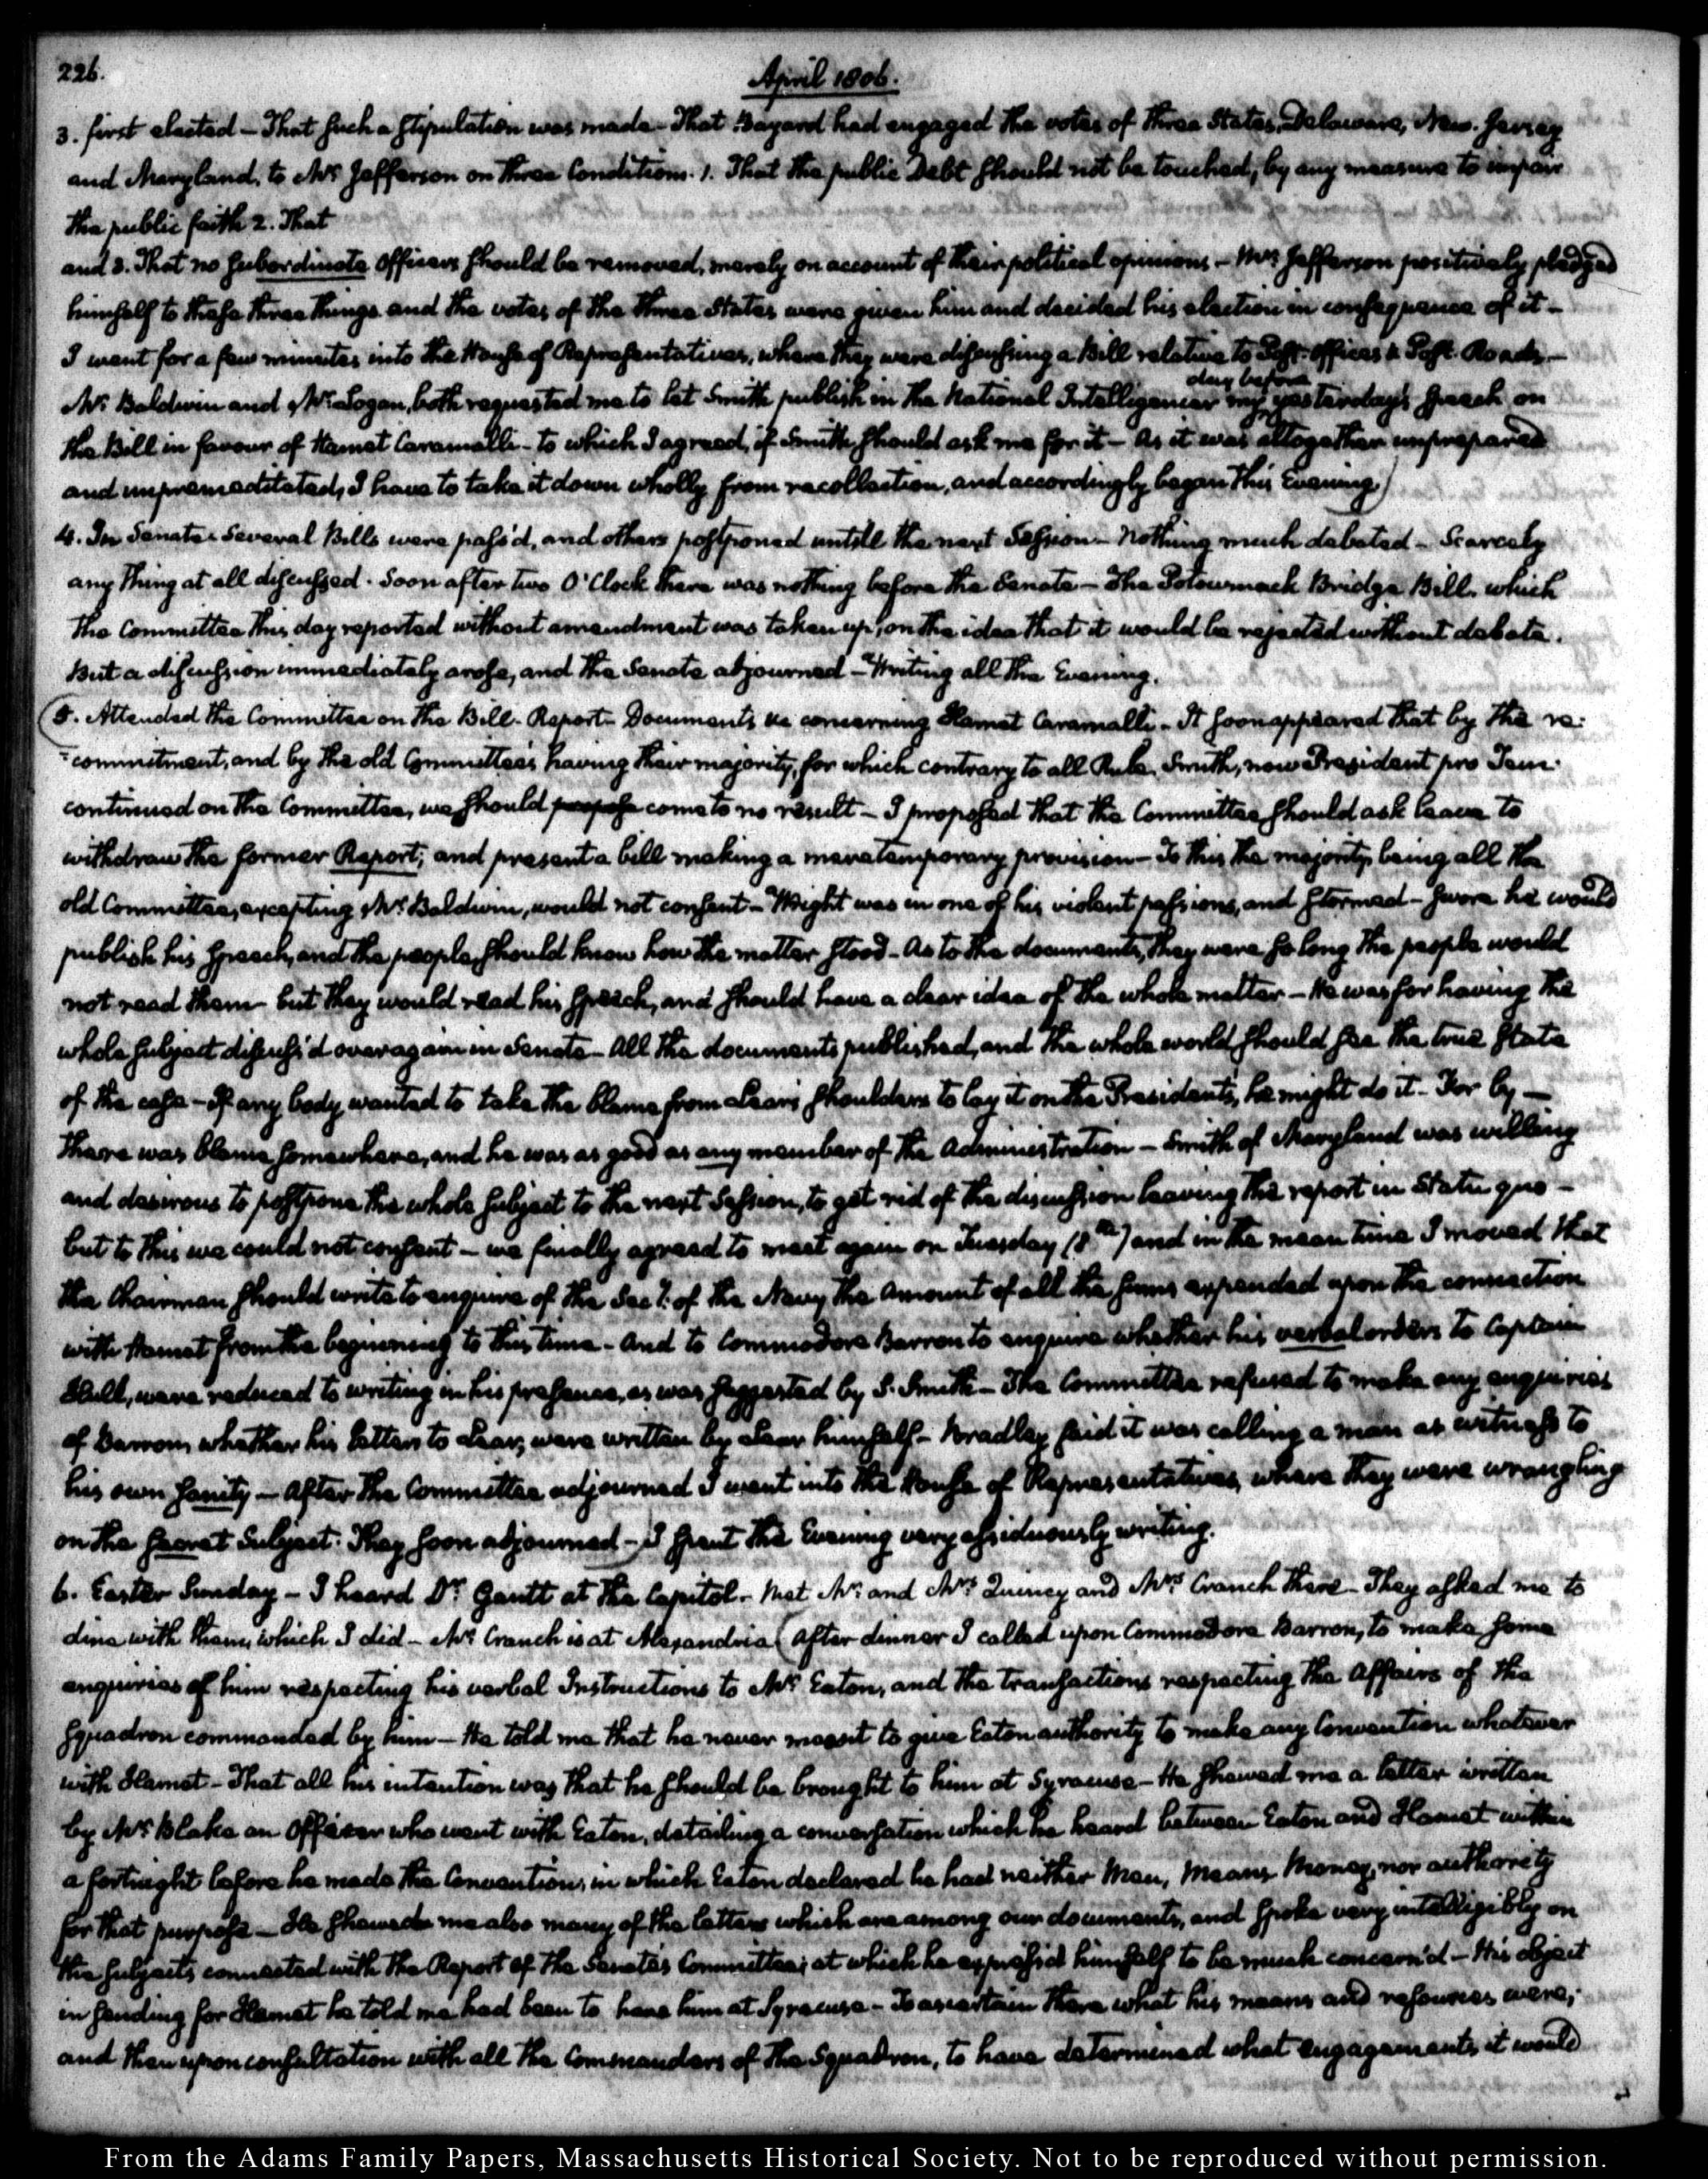 226.
April 1806.
3. first elected - That such a stipulation was made - That Bayard had engaged the votes of three States, Delaware, New-Jersey
and Maryland, to Mr. Jefferson on three Conditions. 1. That the public Debt should not be touched, by any measure to impair
the public faith 2. That
and 3. That no subordinate officers should be removed, merely on account of their political opinions - Mr. Jefferson positively pledged
himself to these three things and the votes of the three States were given him and decided his election in consequence of it -
I went for a few minutes into the House of Representatives, where they were discussing a Bill relative to Post-offices & Post-Roads. -
day before
Mr. Baldwin and Mr. Logan, both requested me to let Smith publish in the National Intelligencer my yesterday's speech on
the Bill in favour of Hamet Caramalli - to which I agreed, if Smith should ask me for it - As it was altogether unprepared
and unpremeditated, I have to take it down wholly from recollection, and accordingly began this Evening)
4. In Senate. Several Bills were pass'd, and others postponed untill the next Session - Nothing much debated - Scarcely
any thing at all discussed. Soon after two O'Clock there was nothing before the Senate - The Potowmack Bridge Bill, which
the Committee this day reported without amendment was taken up, on the idea that it would be rejected without debate.
But a discussion immediately arose, and the Senate adjourned - Writing all the Evening.
(5. Attended the Committee on the Bill - Report - Documents &c concerning Hamet Caramalli - It soon appeared that by the re:
=commitment, and by the old Committee's having their majority, for which contrary to all Rule, Smith, now President pro Tem:
continued on the Committee, we should propose come to no result - I proposed that the Committee should ask leave to
withdraw the former Report, and present a bill making a mere temporary provision - To this the majority being all the
old Committee, excepting Mr. Baldwin, would not consent - Wright was in one of his violent passions, and stormed - swore he would
publish his speech, and the people should know how the matter stood - As to the documents, they were so long the people would
not read them - but they would read his speech, and should have a clear idea of the whole matter - He was for having the
whole subject discuss'd over again in Senate - All the documents published, and the whole world should see the true state
of the case - If any body wanted to take the blame from Lear's shoulders to lay it on the President's, he might do it - For by —
there was blame somewhere, and he was as good as any member of the Administration - Smith of Maryland was willing
and desirous to postpone the whole subject to the next Session, to get rid of the discussion leaving the report in Statu quo -
but to this we could not consent - we finally agreed to meet again on Tuesday (8th) and in the mean time I moved that
the Chairman should write to enquire of the Secy. of the Navy the amount of all the sums expended upon the connection
with Hamet from the beginning to this time - And to Commodore Barron to enquire whether his verbal orders to Captain
Hull, were reduced to writing in his presence, as was suggested by S. Smith - The Committee refused to make any enquiries
of Barron, whether his letters to Lear, were written by Lear himself - Bradley said it was calling a man as witness to
his own sanity - After the Committee adjourned I went into the House of Representatives, where they were wrangling
on the secret subject. They soon adjourned -) I spent the Evening very assiduously writing.
6. Easter Sunday - I heard Dr. Gantt at the Capitol - Met Mr. and Mrs. Quincy and Mrs. Cranch there - They asked me to
dine with them, which I did - Mr. Cranch is at Alexandria (After dinner I called upon Commodore Barron, to make some
enquiries of him respecting his verbal Instructions to Mr. Eaton, and the transactions respecting the affairs of the
squadron commanded by him - He told me that he never meant to give Eaton authority to make any Convention whatever
with Hamet - That all his intention was that he should be brought to him at Syracuse - He shewed me a letter written
by Mr. Blake an Officer who went with Eaton, detailing a conversation which he heard between Eaton and Hamet within
a fortnight before he made the Convention, in which Eaton declared he had neither Men, Means, Money, nor authority
for that purpose - He shewed me also many of the letters which are among our documents, and spoke very intelligibly on
the subjects connected with the Report of the Senate's Committee; at which he express'd himself to be much concern'd - His object
in sending for Hamet he told me had been to have him at Syracuse - To ascertain there what his means and resources were;
and then upon consultation with all the Commanders of the Squadron, to have determined what engagements it would
From the Adams Family Papers, Massachusetts Historical Society. Not to be reproduced without permission.